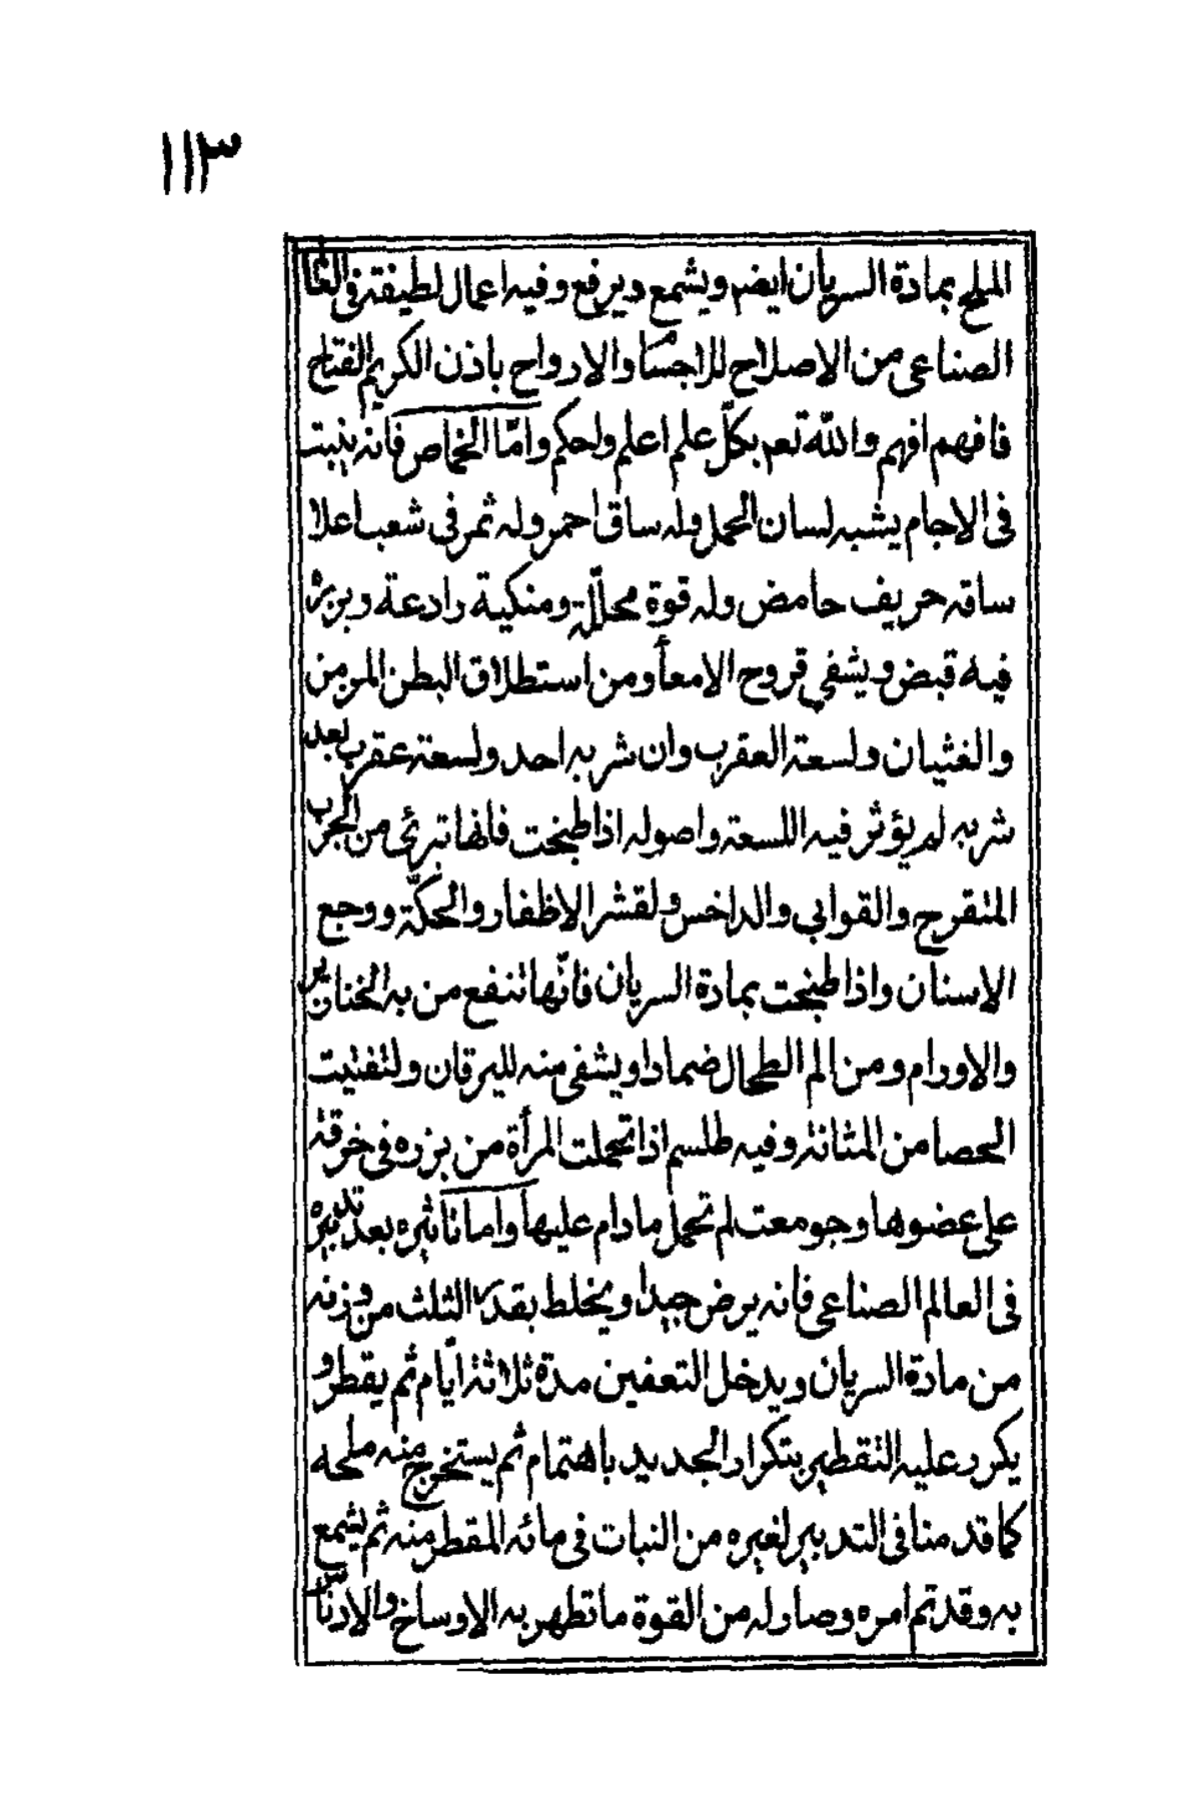 ١١٣
الملح بمادة السريان ايضم ويشمع ويرفع وفيه اعمال لطيفة فى العا
الصناعى من الاصلاح للاجسا والارواح باذن الكريم الفتاح
فافهم افهم والله تعم بكلّ علم اعلم ولحكم وامّا الخماص فانه ينبت
فى الاجام يشبه لسان الحمل وله ساق احمر وله ثمر فى شعب اعلا
ساقه حريف حامض وله قوة محلّلة ومنكية رادعة وبزره
فيه قبض ويشفي قروح الامعأ ومن استطلاق البطن المزمن
والغثيان ولسعة العقرب وان شربه احد ولسعته عقرب بعد
شربه لم يؤثر فيه اللسعة واصوله اذا طبخت فانها تبرئ من الجرب
المتقرح والقوابي والداخس ولقشر الاظفار والحكّة ووجع
الاسنان واذا طبخت بمادة السريان فانّها تنفع من به الخنازير
والاورام ومن الم الطحال ضمادا ويشفى منه لليرقان ولتفتيت
الحصا من المثانة وفيه طلسم اذا تحملت المرأة من بزره فى خرقة
على عضوها وجومعت لم تحمل مادام عليها واما تاثيره بعد تدبيره
فى العالم الصناعى فانه يرض جيدا ويخلط بقدر الثلث من وزنه
من مادة السريان ويدخل التعفين مدة ثلاثة ايّام ثم يقطر و
يكرر عليه التقطير بتكرار الجديد باهتمام ثم يستخرج منه ملحه
كما قدمنا فى التدبير لغيره من النبات فى مائه المقطر منه ثم يشمع
به وقد تم امره وصار له من القوة ما تطهر به الاوساخ والادناس